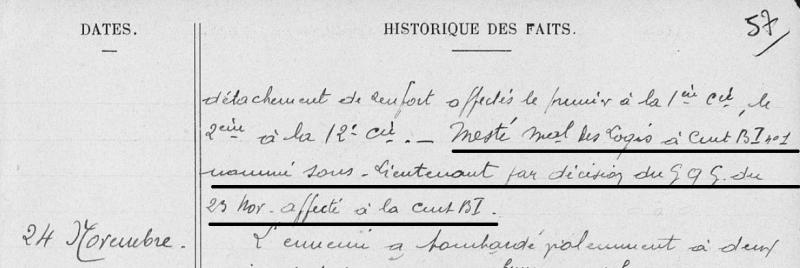 DATES.
HISTORIQUE DES FAITS.
57
détachement de renfort affectés le premier à la 1ère Cie, le
2ème à la 12e Cie. — Mesté Mal des Logis à Cent BI no 1
nommé sous-Lieutenant par décision du G Q G. du
23 Nov. affecté à la Cent BI.
24 Novembre.
L'ennemi a bombardé violemment à deux